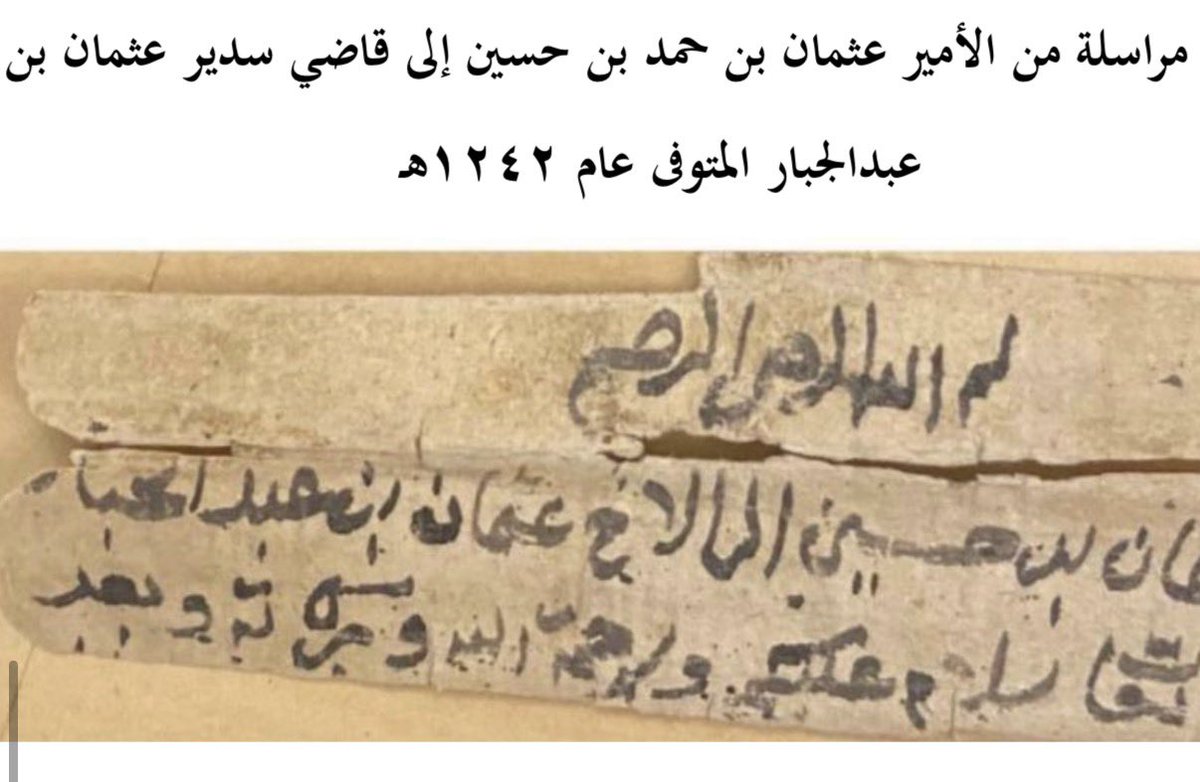 مراسلة من الأمير عثمان بن حمد بن حسين إلى قاضي سدير عثمان بن
عبدالجبار المتوفى عام ١٢٤٢هـ
بسم الله الرحمن الرحيم
بن حسين الى الاخ عثمان ابن عبد الجبار
سلام عليكم ورحمة الله وبركاته وبعد